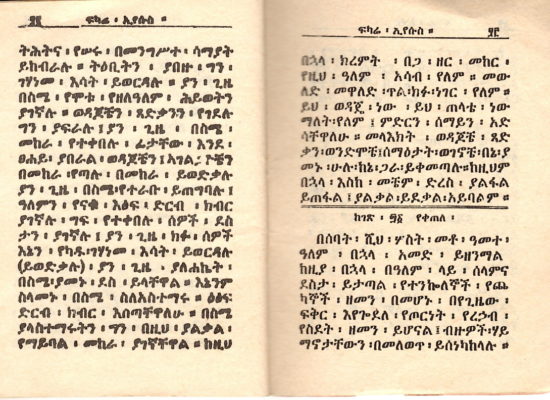 ፍካሬ ፡ ኢየሱስ ።
ትሕትና ፡ የሠሩ ፡ በመንግሥተ ፡ ሰማያት
ይከብራሉ ። ትዕቢትን ፡ ያበዙ ፡ ግን ፡
ገሃነመ ፡ እሳት ፡ ይወርዳሉ ። ያን ፡ ጊዜ
በስሜ ፡ የሞቱ ፡ የዘለዓለም ፡ ሕይወትን
ያገኛሉ ። ወዳጆቼን ፡ ጻድቃንን ፡ የገደሉ
ግን ፡ ያፍራሉ ፤ ያን ፡ ጊዜ ፡ በስሜ ፡
መከራ ፡ የተቀበሉ ፡ ፊታቸው ፡ እንደ ፡
ፀሐይ ፡ ያበራል ፡ ወዳጆቼን ፤
በመከራ ፡ የጣሉ ፡ በመከራ ፡ ይወድቃሉ
ያን ፡ ጊዜ ፡ በስሜ፡የተራቡ ፡ ይጠግባሉ ፤
ዓለምን ፡ የናቁ ፡ እፅፍ ፡ ድርብ ፡ ክብር
ያገኛሉ ፡ ግፍ ፡ የተቀበሉ ፡ ሰዎች ፡ ደስ
ታን ፡ ያገኛሉ ፤ ያን ፡ ጊዜ ፡ ክፉ ፡ ሰዎች
እኔን ፡ የካዱ፡ገሃነመ ፡ እሳት ፡ ይወርዳሉ
(ይወድቃሉ) ፡ ያን ፡ ጊዜ ፡ ያለሐኬት ፡
በስሜ፡ያመኑ ፡ ደስ ፡ ይላቸዋል ። እኔንም
ስላመኑ ፡ በስሜ ፡ ስለአስተማሩ ። ዕፅፍ
ድርብ ፡ ክብር ፡ እሰጣቸዋለሁ ። በስሜ
ያላስተማሩትን ፡ ግን ፡ በዚህ ፡ ያልቃል ፡
የማይባል ፡ መከራ ፡ ያገኛቸዋል ። ከዚህ
ፍካሬ ፡ ኢየሱስ ።
በኋላ ፡ ክረምት ፡ በጋ ፡ ዘር ፡ መከር ፡
የዚህ ፡ ዓለም ፡ አሳብ ፡ የለም ። መው
ለድ ፡ መዋለድ ፡ጥል፡ክፉ፡ነገር ፡ የለም ።
ይህ ፡ ወዳጄ ፡ ነው ፡ ይህ ፡ ጠላቴ ፡ ነው
ማለት፡የለም ፤ ምድርን ፡ ሰማይን ፡ አድ
ሳቸዋለሁ ። መላእክት ፡ ወዳጆቼ ፡ ጻድ
ቃን፡ወንድሞቼ፤ሰማዕታት፡ወገኖቼ፡በኔ፡ያ
መኑ ፡ሁሉ፡ከኔ፡ጋራ፡ይቀመጣሉ።ከዚህም
በኋላ ፡ እስከ ፡ መቼም ፡ ድረስ ፡ ያልፋል
ይጠፋል ፤ያልቃል፡ይደቃል፡አይባልም ።
ከገጽ ፡ ፵፩ ፡ የቀጠለ ፡
በሰባት ፡ ሺህ ፡ ሦስት ፡ መቶ ፡ ዓመተ ፡
ዓለም ፡ በኋላ ፡ አመድ ፡ ይዘንማል
ከዚያ ፡ በኋላ ፡ በዓለም ፡ ላይ ፡ ሰላምና
ደስታ ፡ ይታጣል ፡ የተንኰለኞች ፡ የጨ
ካኞች ፡ ዘመን ፡ በመሆኑ ፡ በየጊዜው ፡
ፍቅር ፡ እየጐደለ ፡ የጦርነት ፡ የረኃብ ፡
የስደት ፡ ዘመን ፡ ይሆናል ፤ ብዙዎች፡ሃይ
ማኖታቸውን ፡በመለወጥ ፡ይሰነካከላሉ ።